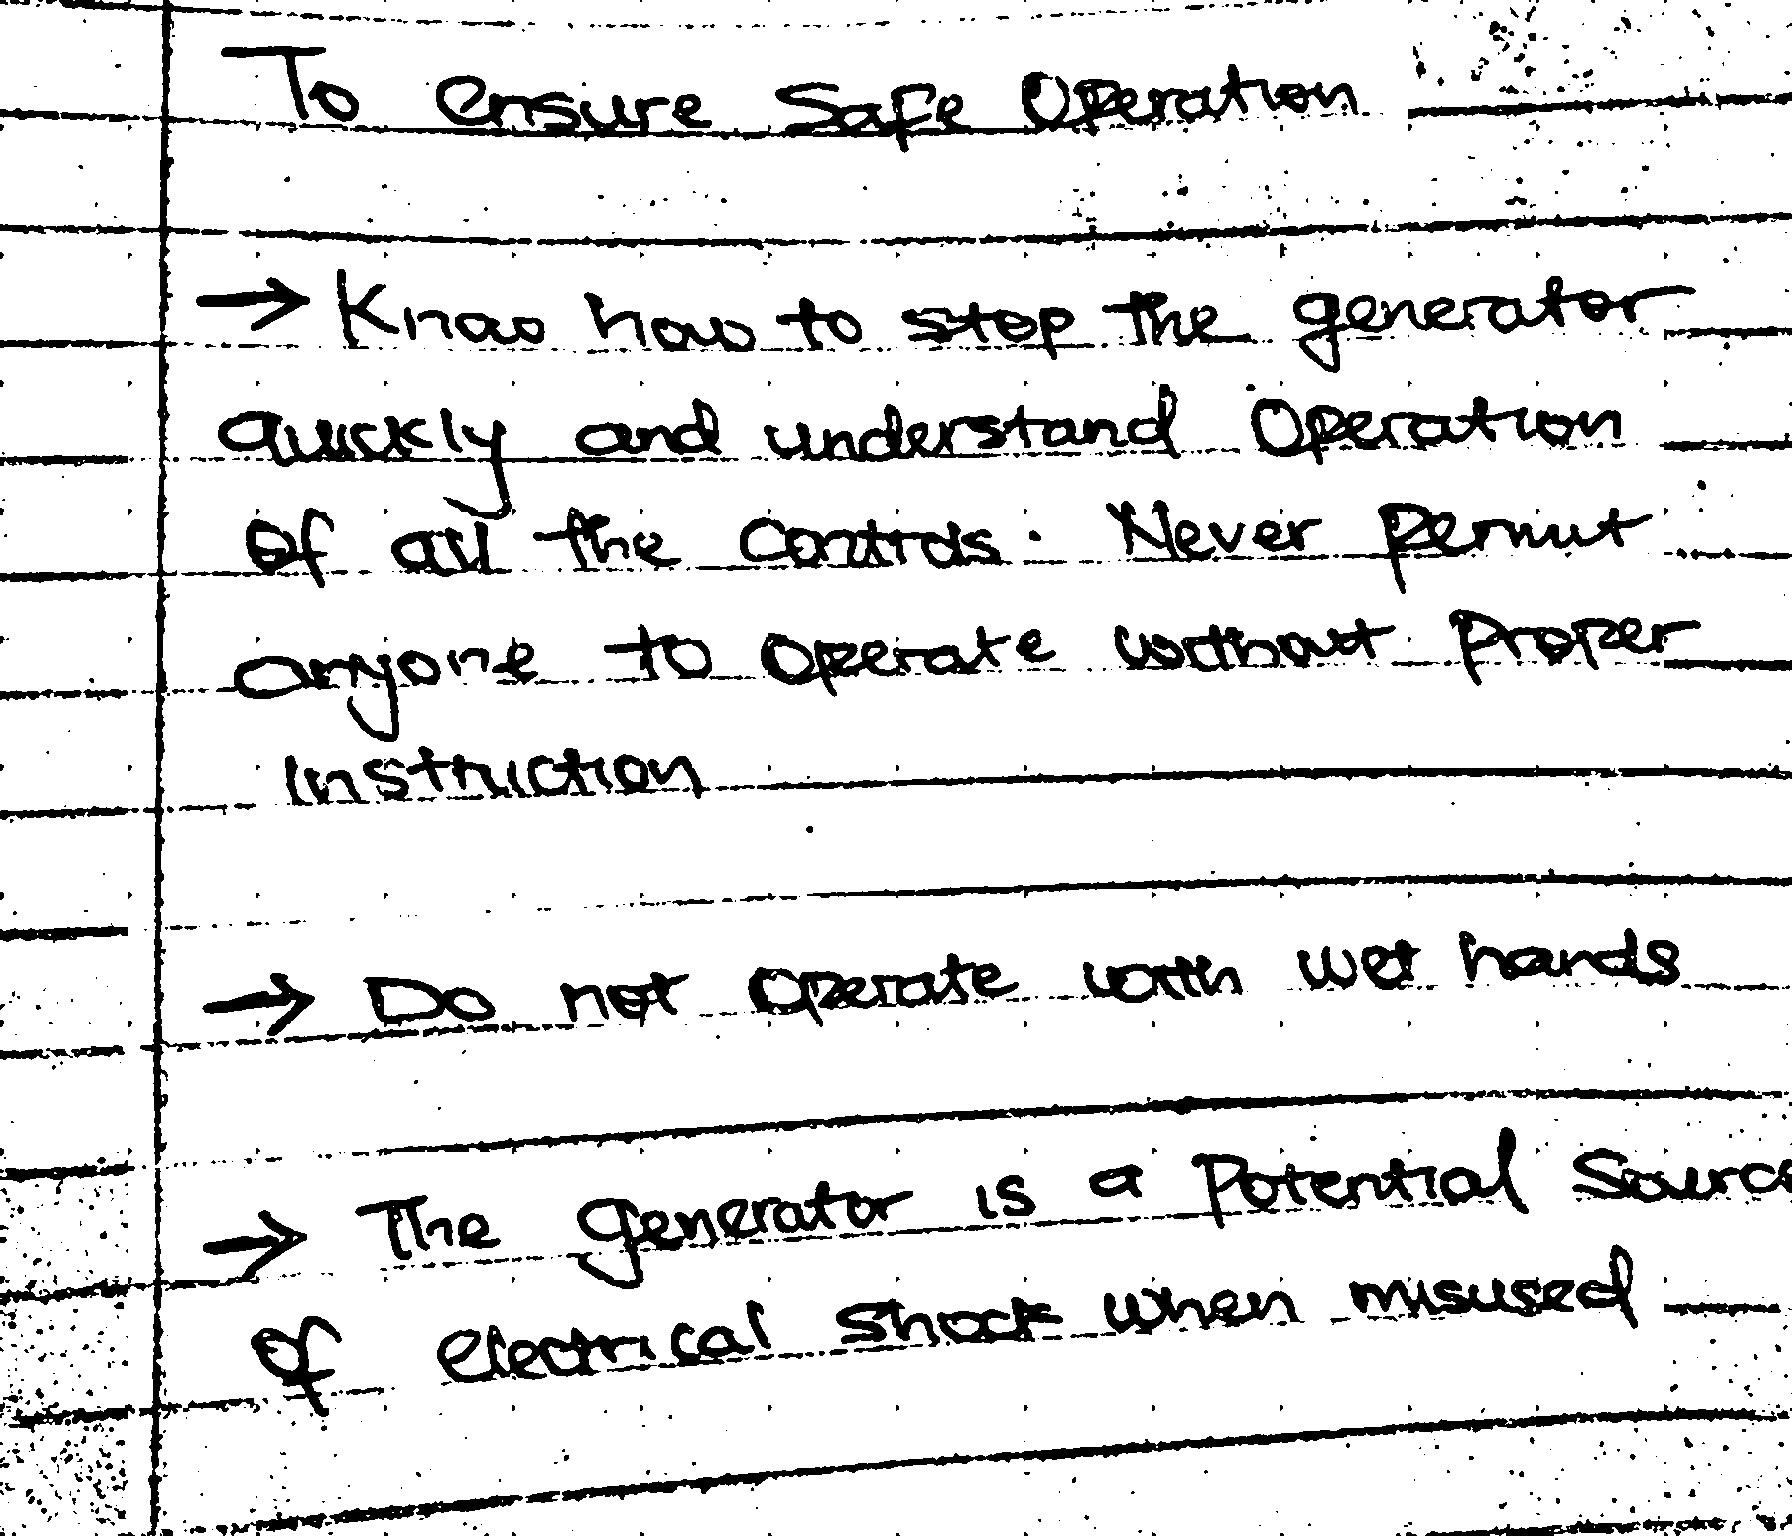 To ensure Safe Operation
→ Know how to stop the generator
quickly and understand Operation
Of all the Controls. Never Permit
anyone to Operate without Proper
Instruction
→ Do not Operate with wet hands
→ The generator is a Potential Source
Of electrical Shock when misused